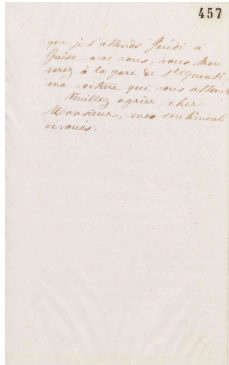 457
que je l'attends Jeudi à
Guise avec vous, vous trou
verez à la gare de St Quentin
ma voiture qui vous attend.
Veuillez agréer, cher
Monsieur, mes sentiments
dévoués.